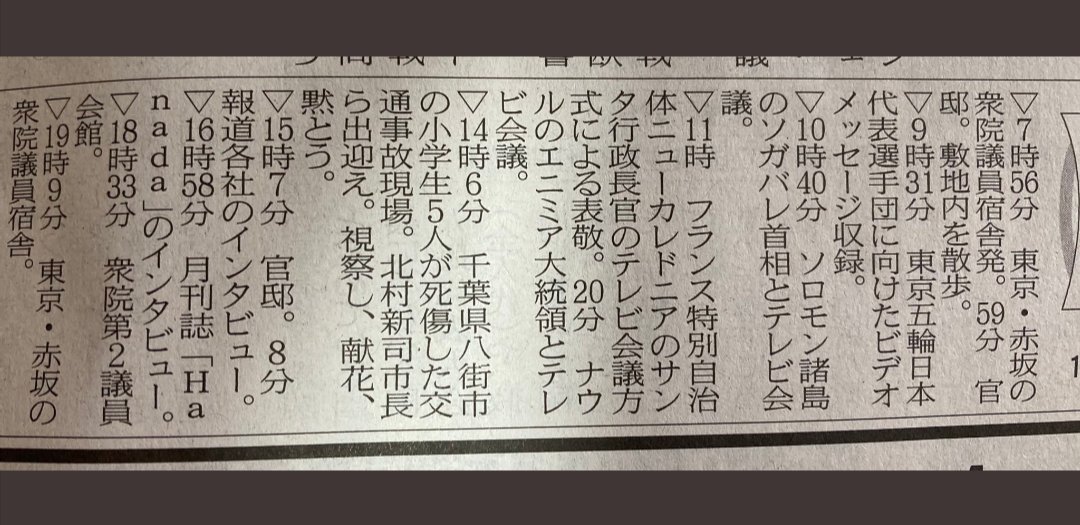 ▽7時56分　東京・赤坂の
衆院議員宿舎発。59分　官
邸。敷地内を散歩。
▽9時31分　東京五輪日本
代表選手団に向けたビデオ
メッセージ収録。
▽10時40分　ソロモン諸島
のソガバレ首相とテレビ会
議。
▽11時　フランス特別自治
体ニューカレドニアのサン
タ行政長官のテレビ会議方
式による表敬。20分　ナウ
ルのエニミア大統領とテレ
ビ会議。
▽14時6分　千葉県八街市
の小学生5人が死傷した交
通事故現場。北村新司市長
ら出迎え。視察し、献花、
黙とう。
▽15時7分　官邸。8分
報道各社のインタビュー。
▽16時58分　月刊誌「Ha
nada」のインタビュー。
▽18時33分　衆院第2議員
会館。
▽19時9分　東京・赤坂の
衆院議員宿舎。